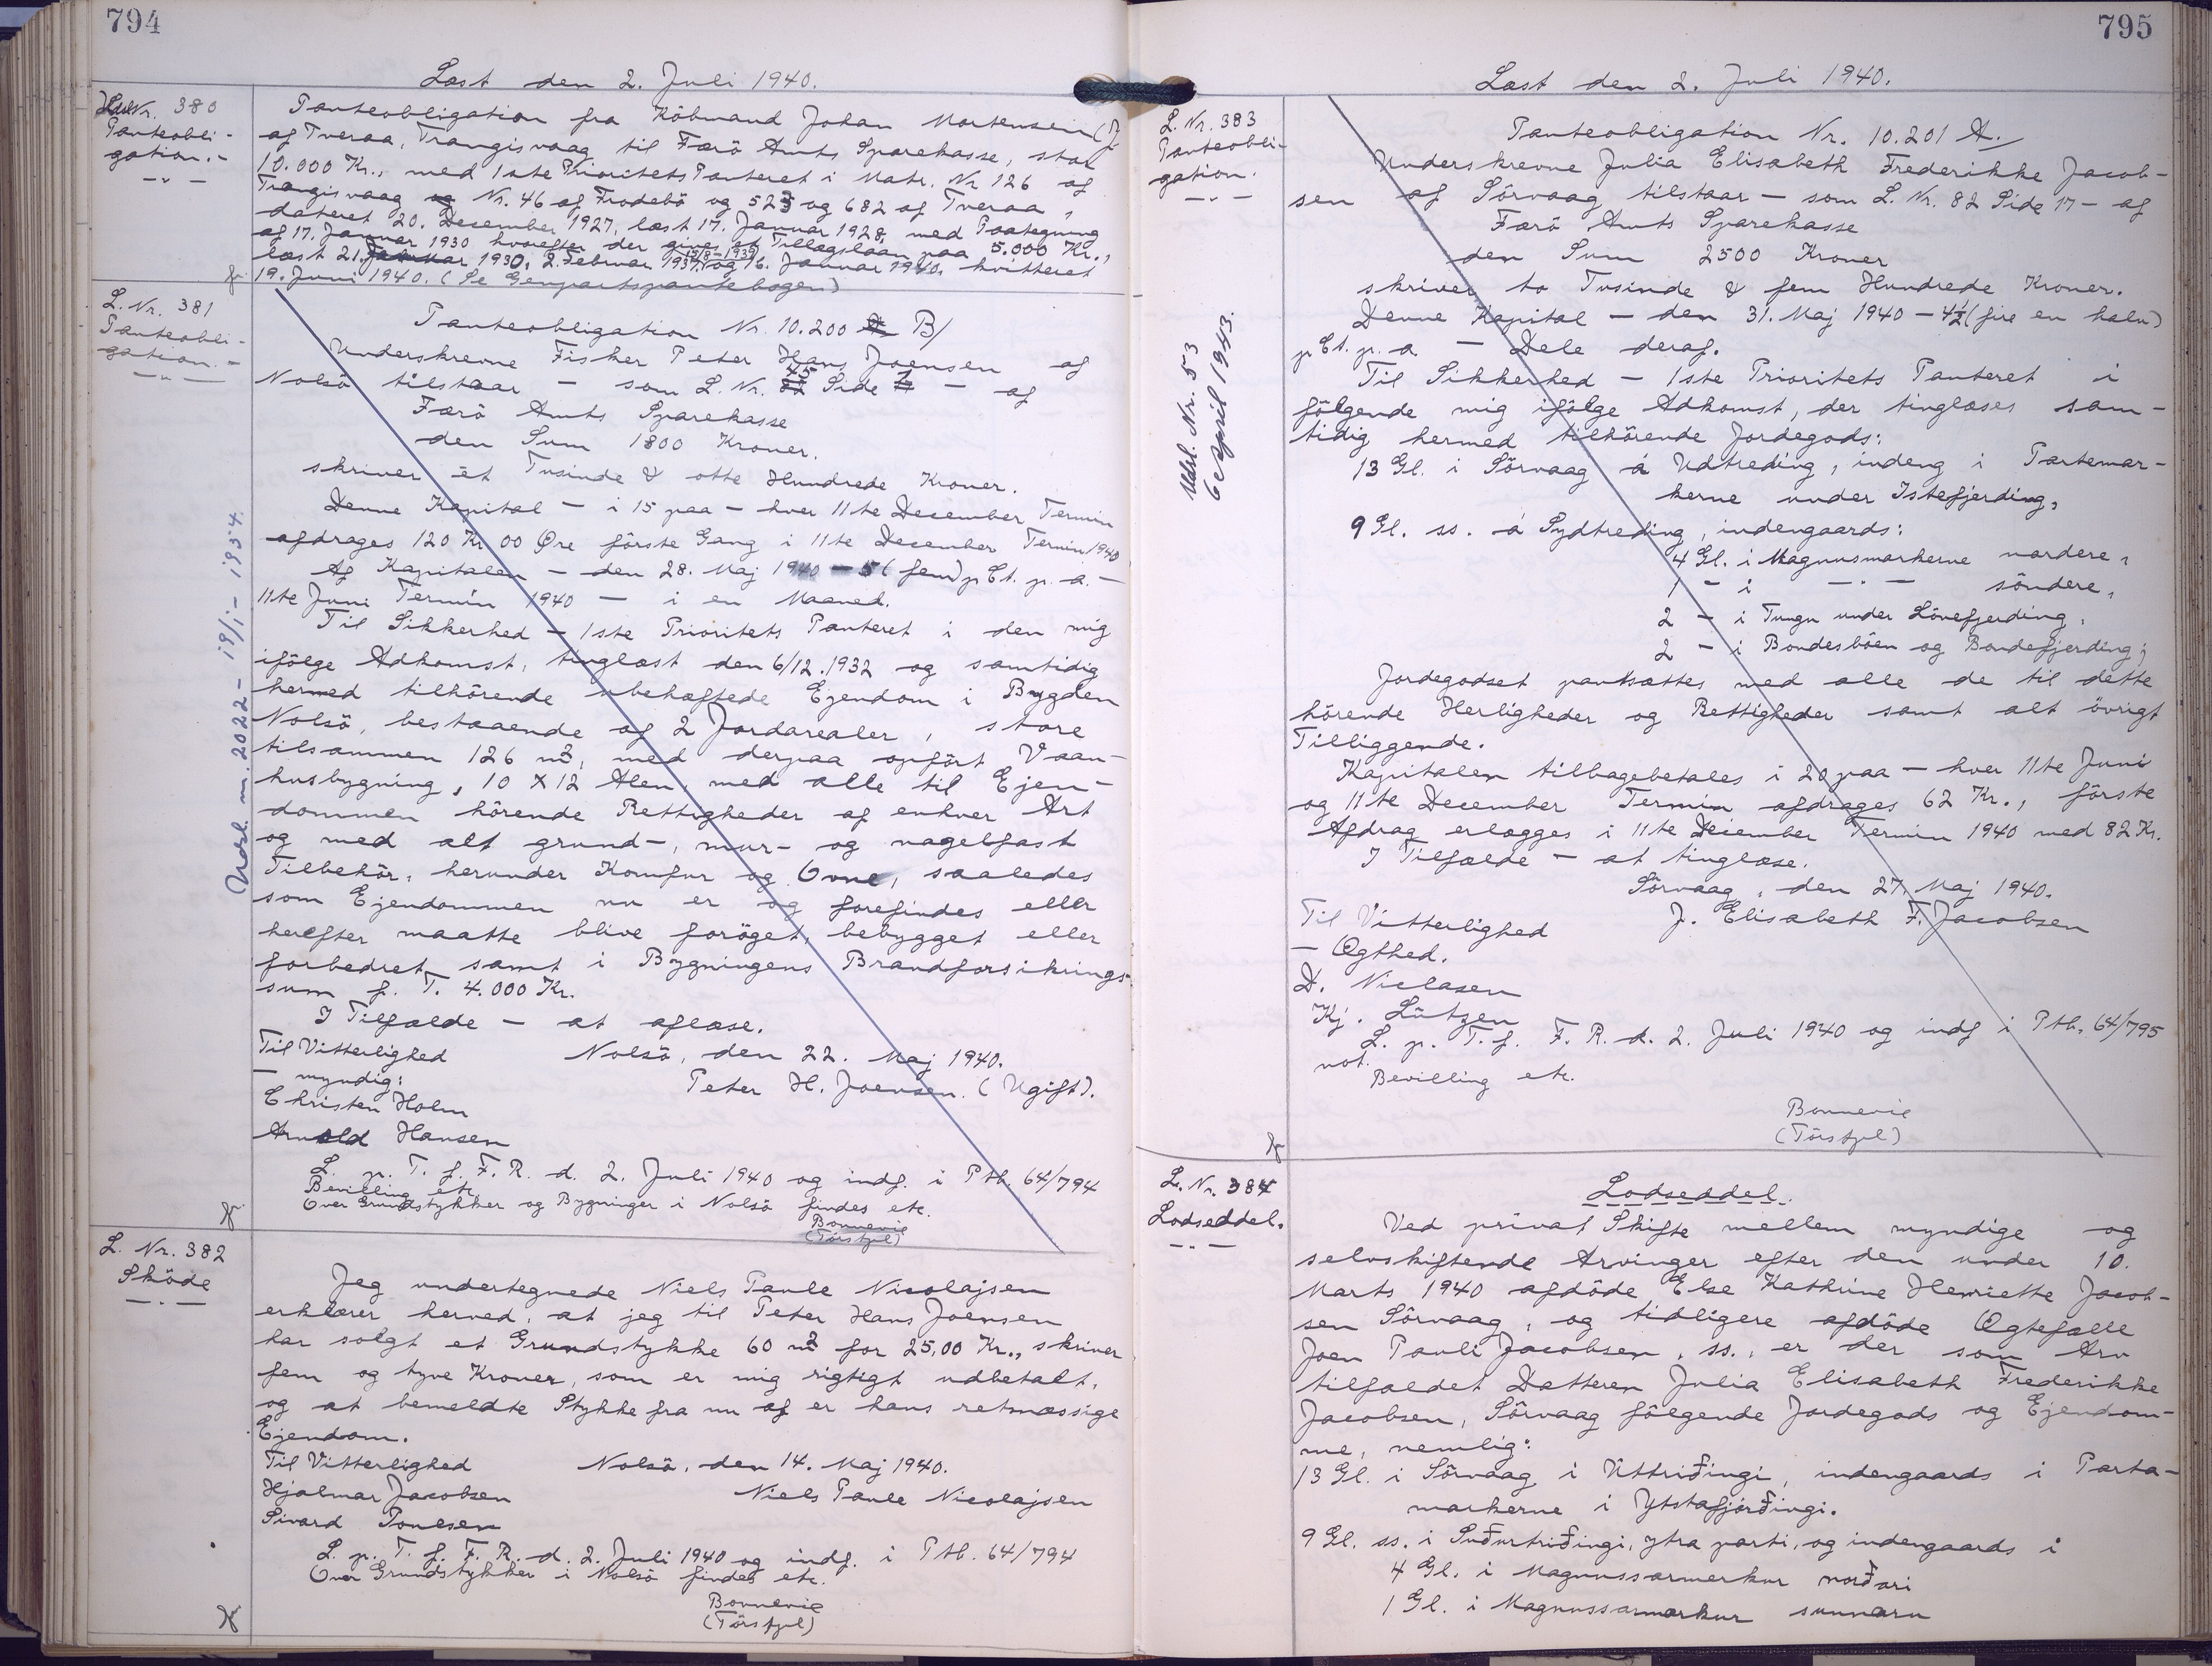 794
Læst den 2. Juli 1940.
L. Nr. 380
Panteobli-
gation.-
Panteobligation fra Köbmand Johan Mortensen
af Tveraa, Trangisvaag til Færö Amts Sparekasse, stor
10.000 Kr., med 1ste Prioritets Panteret i Matr. Nr 126 af
Trangisvaag og Nr. 46 af Frodebö og 523 og 682 af Tveraa,
dateret 20. December 1927, læst 17. Januar 1928, med Paategning
af 17. Januar 1930 hvorefter der gives et Tillægslaan paa 5.000 Kr.,
læst 21. Januar 1930, 2. Februar 1937, 15/8-1939 og 16. Januar 1940. kvitteret
19. Juni 1940. (Se Genpartspantebogen)
L. Nr. 381
Panteobli-
gation.-
Panteobligation Nr. 10.200 B/
Underskrevne Fisker Peter Hans Joensen af
Nolsö tilstaar - som L. Nr. 45 Side 1 - af
Færö Amts Sparekasse
den Sum 1800 Kroner.
skriver et Tusinde & otte Hundrede Kroner.
Denne Kapital - i 15 paa - hver 11te December Termin
afdrages 120 Kr 00 Øre förste Gang i 11te December Termin 1940
Af Kapitalen - den 28. Maj 1940 - 5 (fem) p Ct. p. a. -
11te Juni Termin 1940 - i en Maaned.
Til Sikkerhed - 1ste Prioritets Panteret i den mig
ifölge Adkomst, tinglæst den 6/12.1932 og samtidig
hermed tilhörende ubehæftede Ejendom i Bygden
Nolsö, bestaaende af 2 Jordarealer, store
tilsammen 126 m2, med derpaa opfört Vaan-
husbygning, 10 X 12 Alen, med alle til Ejen-
dommen hörende Rettigheder af enhver Art
og med alt grund-, mur- og nagelfast
Tilbehör, herunder Komfur og Ovne, saaledes
som Ejendommen nu er og forefindes eller
herefter maatte blive foröget, bebygget eller
forbedret, samt i Bygningens Brandforsikrings-
sum f. T. 4.000 Kr.
I Tilfælde - at aflæse.
Til Vitterlighed Nolsö, den 22. Maj 1940.
- myndig: Peter H. Joensen. (Ugift).
Christen Holm
Arnold Hansen
L. p. T. f. F. R. d. 2. Juli 1940 og indf. i Ptb. 64/794
Bevilling etc
Over Grundstykker og Bygninger i Nolsö findes etc.
Bonnevie
(Törsfjel)
Udsl. nr. 2022 - 19/1 - 1954.
L. Nr. 382
Sköde
Jeg undertegnede Niels Paule Nicolajsen
erklærer herved, at jeg til Peter Hans Joensen
har solgt et Grundstykke 60 m2 for 25,00 Kr., skriver
fem og tyve Kroner, som er mig rigtigt udbetalt,
og at bemeldte Stykke fra nu af er hans retmæssige
Ejendom.
Til Vitterlighed Nolsö, den 14. Maj 1940.
Hjalmar Jacobsen Niels Paule Nicolajsen
Sivard Poulsen
L. p. T. f. F. R. d. 2. Juli 1940 og indf. i Ptb. 64/794
Over Grundstykker i Nolsö findes etc.
Bonnevie
(Törsfjel)
795
Læst den 2. Juli 1940.
L. Nr. 383
Panteobli-
gation.
Panteobligation Nr. 10.201 A.
Underskrevne Julia Elisabeth Frederikke Jacob-
sen af Sörvaag tilstaar - som L. Nr. 82 Side 17 - af
Færö Amts Sparekasse
den Sum 2500 Kroner
skriver to Tusinde & fem Hundrede Kroner.
Denne Kapital - den 31. Maj 1940 - 4½ (fire en halv)
p Ct. p. a - Dele deraf.
Til Sikkerhed - 1ste Prioritets Panteret i
fölgende mig ifölge Adkomst, der tinglæses sam-
tidig hermed tilhörende Jordegods:
13 Gl. i Sörvaag á Udtreding, indeng i Partemar-
kerne under Istefjerding,
9 Gl. ss. á Sydtreding, indengaards:
4 Gl. i Magnusmarkerne nordere,
1 - i - " - söndere,
2 - i Tungu under Lönefjerding,
2 - i Bondesböen og Bondefjerding;
Jordegodset pantsættes med alle de til dette
hörende Herligheder og Rettigheder samt alt övrigt
Tilliggende.
Kapitalen tilbagebetales i 20 paa - hver 11te Juni
og 11te December Termin afdrages 62 Kr., förste
Afdrag erlægges i 11te December Termin 1940 med 82 Kr.
I Tilfælde - at tinglæse.
Sörvaag, den 27. Maj 1940.
Til Vitterlighed J. Elisabeth F. Jacobsen
- Ægthed.
D. Niclasen
Kj. Lützen
L. p. T. f. F. R. d. 2. Juli 1940 og indf i Ptb. 64/795
not.
Bevilling etc.
Bonnevie
(Törsfjel)
Udsl. Nr. 53
6 April 1943.
L. Nr. 384
Lodseddel.
Lodseddel.
Ved privat Skifte mellem myndige og
selvskiftende Arvinger efter den under 10.
Marts 1940 afdöde Else Kathrine Henriette Jacob-
sen Sörvaag, og tidligere afdöde Ægtefælle
Joen Pauli Jacobsen, ss., er der som Arv
tilfaldet Datteren Julia Elisabeth Frederikke
Jacobsen, Sörvaag fölgende Jordegods og Ejendom-
me, nemlig:
13 Gl. i Sörvaag i Uttriðingi, indengaards i Parta-
markerne i Ytstafjórðingi.
9 Gl. ss. i Suðurtriðingi, ytra parti, og indengaards i
4 Gl. i Magnussarmerkur norðari
1 Gl. i Magnussarmerkur sunnaru